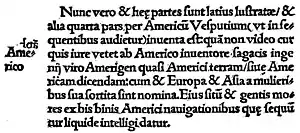 Nunc vero & hȩ partes sunt latius lustratæ/ &
alia quarta pars per Americū Vesputium( vt in se
quentibus audietur)inuenta est:quā non video cur
quis iure vetet ab Americo inuentore sagacis inge
nij viro Amerigen quasi Americi terram/siue Ame
ricam dicendam:cum & Europa & Asia a mulieri
bus sua sortita sint nomina. Eius sitū & gentis mo
res ex bis binis Americi nauigationibus quȩ sequū
tur liquide intelligi datur.
Ame
rico